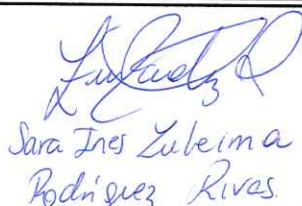 Sara Ines Zuleima
Rodríguez Rivas.